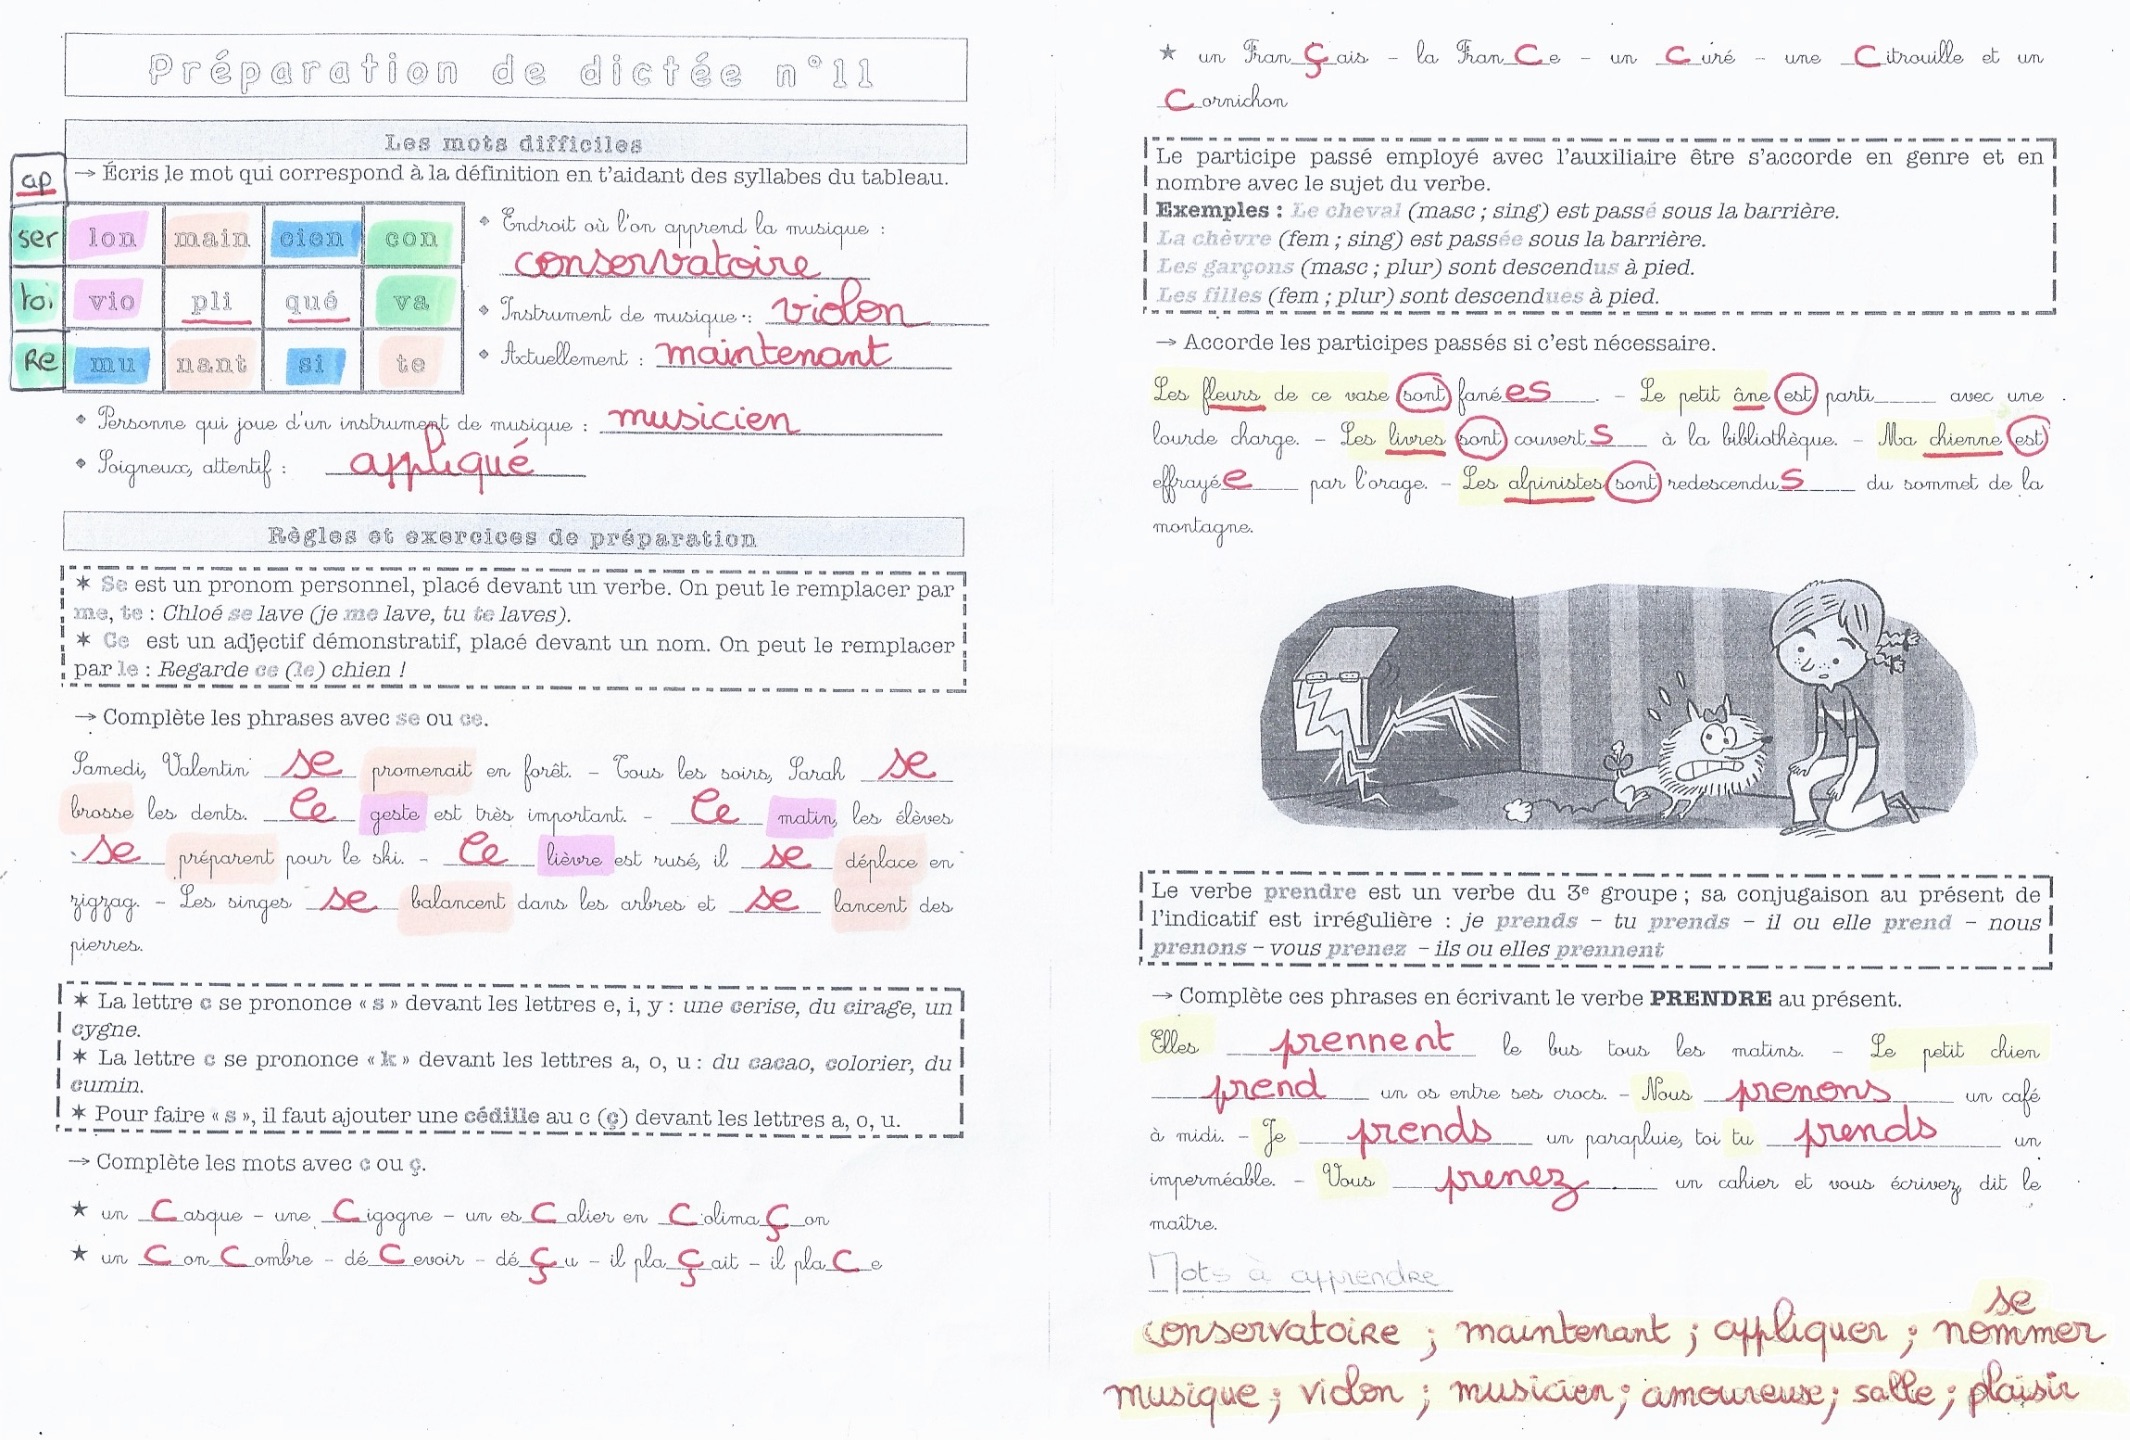 Préparation de dictée n°11
Les mots difficiles
→ Écris le mot qui correspond à la définition en t'aidant des syllabes du tableau.
ap
ser lon main cien con
toi vio pli qué va
Re mu nant si te
• Endroit où l'on apprend la musique :
conservatoire
• Instrument de musique : violon
• Actuellement : maintenant
• Personne qui joue d'un instrument de musique : musicien
• Soigneux, attentif : appliqué
Règles et exercices de préparation
✶ Se est un pronom personnel, placé devant un verbe. On peut le remplacer par
me, te : Chloé se lave (je me lave, tu te laves).
✶ Ce est un adjectif démonstratif, placé devant un nom. On peut le remplacer
par le : Regarde ce (le) chien !
→ Complète les phrases avec se ou ce.
Samedi, Valentin se promenait en forêt. – Tous les soirs, Sarah se
brosse les dents. Ce geste est très important. – Ce matin, les élèves
se préparent pour le ski. – Ce lièvre est rusé, il se déplace en
zigzag. – Les singes se balancent dans les arbres et se lancent des
pierres.
✶ La lettre c se prononce « s » devant les lettres e, i, y : une cerise, du cirage, un
cygne.
✶ La lettre c se prononce « k » devant les lettres a, o, u : du cacao, colorier, du
cumin.
✶ Pour faire « s », il faut ajouter une cédille au c (ç) devant les lettres a, o, u.
→ Complète les mots avec c ou ç.
★ un Casque – une Cigogne – un esCalier en ColimaÇon
★ un ConCombre – déCevoir – déÇu – il plaÇait – il plaCe
★ un FranÇais – la FranCe – un Curé – une Citrouille et un
Cornichon
Le participe passé employé avec l'auxiliaire être s'accorde en genre et en
nombre avec le sujet du verbe.
Exemples : Le cheval (masc ; sing) est passé sous la barrière.
La chèvre (fem ; sing) est passée sous la barrière.
Les garçons (masc ; plur) sont descendus à pied.
Les filles (fem ; plur) sont descendues à pied.
→ Accorde les participes passés si c'est nécessaire.
Les fleurs de ce vase sont fanées. – Le petit âne est parti____ avec une
lourde charge. – Les livres sont couverts à la bibliothèque. – Ma chienne est
effrayée par l'orage. – Les alpinistes sont redescendus du sommet de la
montagne.
Le verbe prendre est un verbe du 3e groupe ; sa conjugaison au présent de
l'indicatif est irrégulière : je prends – tu prends – il ou elle prend – nous
prenons – vous prenez – ils ou elles prennent
→ Complète ces phrases en écrivant le verbe PRENDRE au présent.
Elles prennent le bus tous les matins. – Le petit chien
prend un os entre ses crocs. – Nous prenons un café
à midi. – Je prends un parapluie, toi tu prends un
imperméable. – Vous prenez un cahier et vous écrivez, dit le
maître.
Mots à apprendre
se
conservatoire ; maintenant ; appliquer ; nommer
musique ; violon ; musicien ; amoureuse ; salle ; plaisir